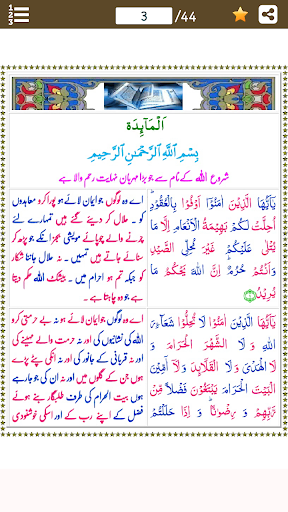 1
2
3
3 /44
اَلْمَآئِدَة
بِسْمِ اللّٰهِ الرَّحْمٰنِ الرَّحِيْمِ
شروع اللہ کے نام سے جو بڑا مہربان نہایت رحم والا ہے
يٰٓاَيُّهَا الَّذِيْنَ اٰمَنُوْٓا اَوْفُوْا بِالْعُقُوْدِ
اُحِلَّتْ لَكُمْ بَهِيْمَةُ الْاَنْعَامِ اِلَّا مَا
يُتْلٰى عَلَيْكُمْ غَيْرَ مُحِلِّى الصَّيْدِ
وَاَنْتُمْ حُرُمٌ اِنَّ اللّٰهَ يَحْكُمُ مَا
يُرِيْدُ
اے وہ لوگوں جو ایمان لائے ہو پورا کرو معاہدوں
کو ۔ حلال کر دیئے گئے ہیں تمہارے لئے
چرنے والے چوپائے مویشی بجز انکے جو پڑھ کر
سنائے جاتے ہیں تمہیں ۔ نہ حلال جاننا شکار
کو جبکہ تم ہو احرام میں ۔ بیشک اللہ حکم دیتا
ہے جو وہ چاہتا ہے ۔
يٰٓاَيُّهَا الَّذِيْنَ اٰمَنُوْا لَا تُحِلُّوْا شَعَآئِرَ
اللّٰهِ وَ لَا الشَّهْرَ الْحَرَامَ وَ
لَا الْهَدْىَ وَ لَا الْقَلَآئِدَ وَ لَآ آٰمِّيْنَ
الْبَيْتَ الْحَرَامَ يَبْتَغُوْنَ فَضْلًا مِّنْ
رَّبِّهِمْ وَ رِضْوَانًا وَ اِذَا حَلَلْتُمْ
اے وہ لوگوں جو ایمان لائے ہو نہ بے حرمتی کرو
اللہ کی نشانیوں کی اور نہ حرمت والے مہینے کی
اور نہ قربانی کے جانور کی اور نہ انکی پٹے پڑے
ہوں جن کے گلوں میں اور نہ ان کی جو جارہے
ہوں بیت الحرام کی طرف طلبگار بنے ہوئے
فضل کے اپنے رب کے اور اسکی خوشنودی